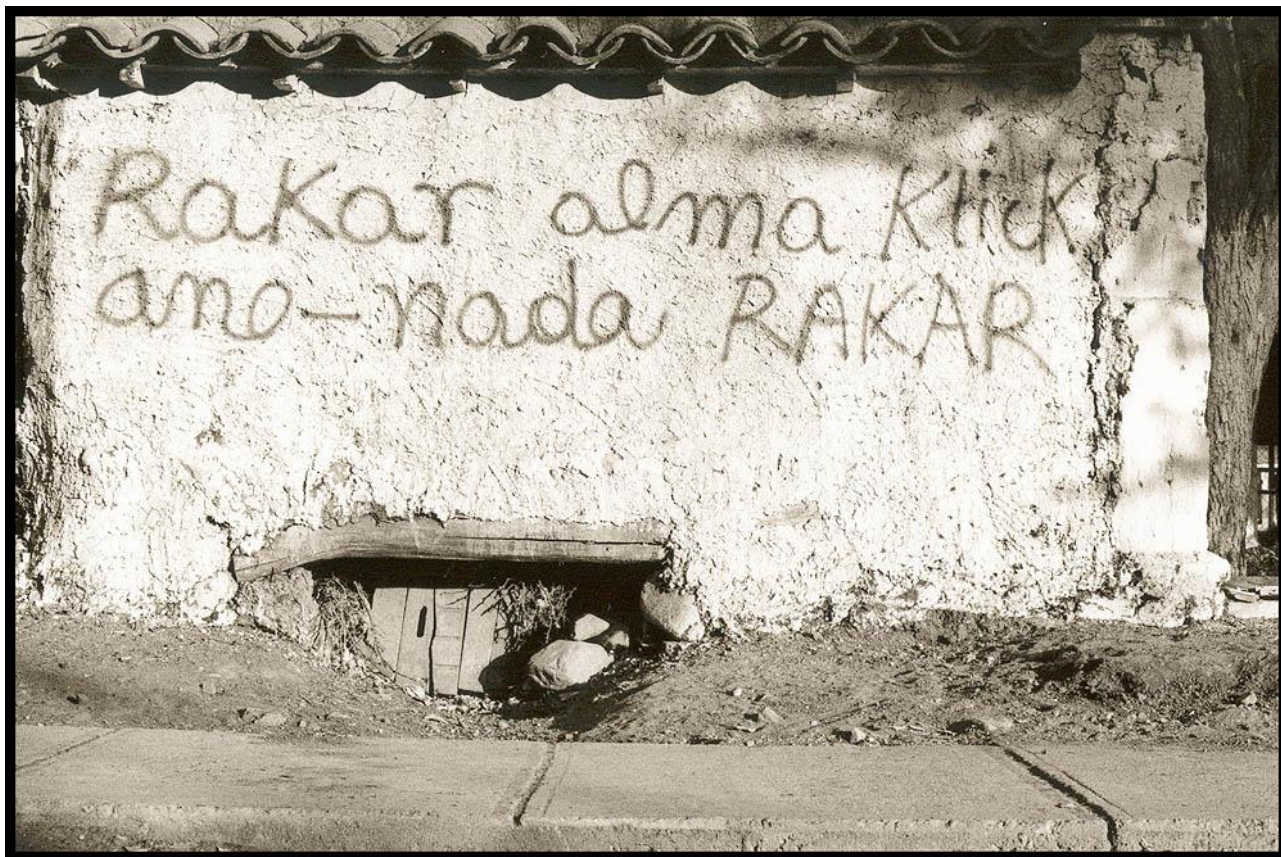 Rakar alma Klick
ane-nada RAKAR